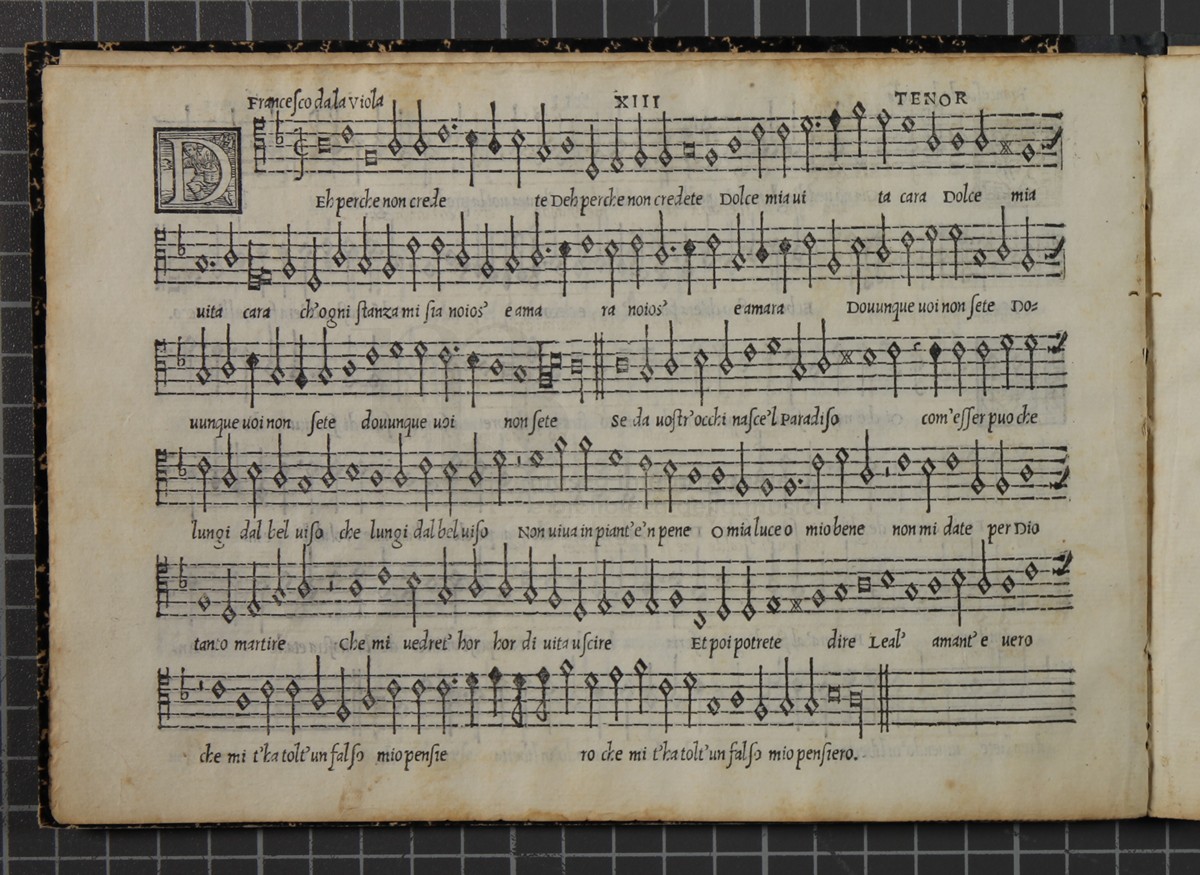 Francesco dala Viola XIII TENOR
D
Eh perche non crede te Deh perche non credete Dolce mia ui ta cara Dolce mia
uita cara ch'ogni stanza mi sia noios' e ama ra noios' e amara Douunque uoi non sete Do=
uunque uoi non sete douunque uoi non sete Se da uostr'occhi nasce'l Paradiso com'esser puo che
lungi dal bel uiso che lungi dal bel uiso Non uiua in piant'e'n pene O mia luce o mio bene non mi date per Dio
tanto martire Che mi uedret' hor hor di uita uscire Et poi potrete dire Leal' amant'e uero
che mi t'ha tolt'un falso mio pensie ro che mi t'ha tolt'un falso mio pensiero.